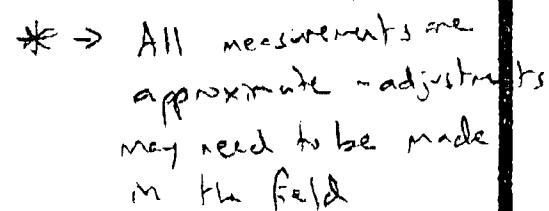 * → All measurements are
approximate - adjustments
may need to be made
in the field